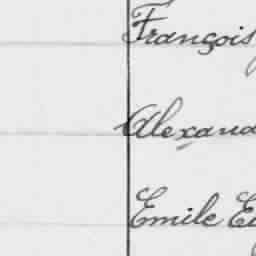 François
Alexand
Emile E